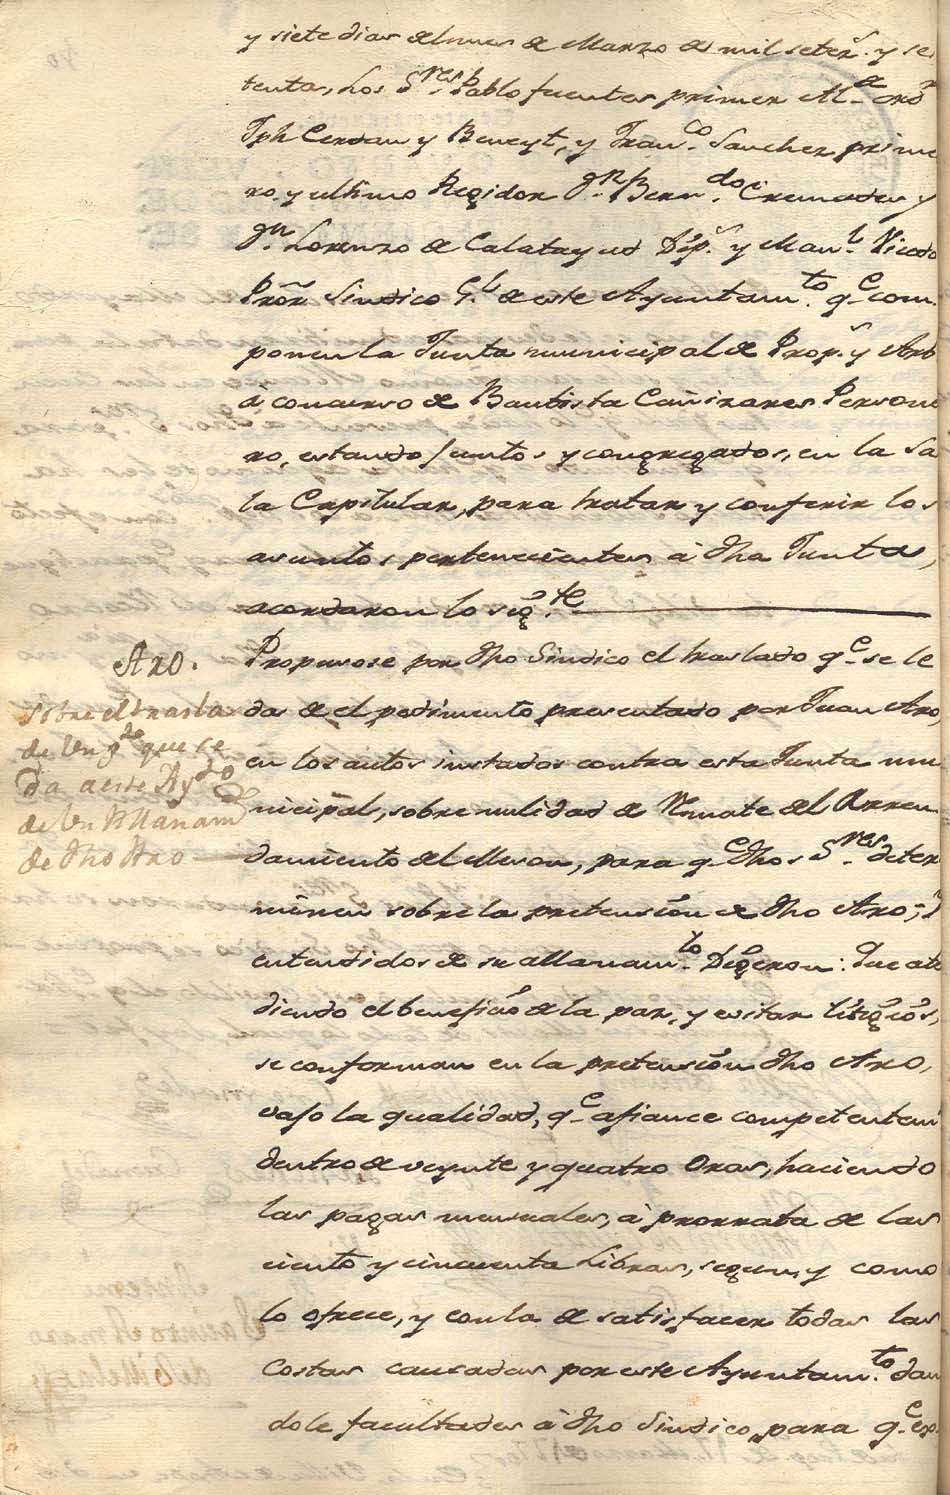 y siete dias del mes de Marzo de mil setez.s y se
tenta, Los S.res Pablo fuentes primer Al.de oro.r
Jph Cerdan y Beneyt, y Fran.co Sanchez prime
ro, y ultimo Regidor, Bern.do Cremades y
Lorenzo de Calatayud Dip.s y Man.l Picedo
Pro͂r Sindico G.l de este Ayuntam.to q.e com
ponen la Junta municipal de Prop.s y Arb
à concurso de Bautista Cañizares Persone
ro, estando juntos y congregados, en la Sa
la Capitular, para tratar y conferir los
asuntos pertenecientes à dha Junta,
acordaron lo sig.te
Aro.
sobre el trasla
de Un p.do que se
da a este Ay.to
de Un Allanam.to
de dho Aro
Propusose por dho Sindico el traslado q.e se le
da de el pedimento presentado por Juan Aro,
en los autos instados contra esta Junta mu
nicipal, sobre nulidad de Remate del Arren
damiento del Meson, para q.e dhos S.res deter
minen sobre la pretension de dho Aro; Y
entendidos de su allanam.to Digeron: Que ate
diendo el beneficio de la paz, y evitar litigios,
se conforman en la pretension dho Aro,
vajo la qualidad, q.e afiance competentem
dentro de veynte y quatro Oras, haciendo
las pagas mensuales, à prorrata de las
ciento y cincuenta Libras, segun, y como
lo ofrece, y con la de satisfacer todas las
Costas causadas por este Ayuntam.to dan
dole facultades à dho Sindico, para q.e exp.